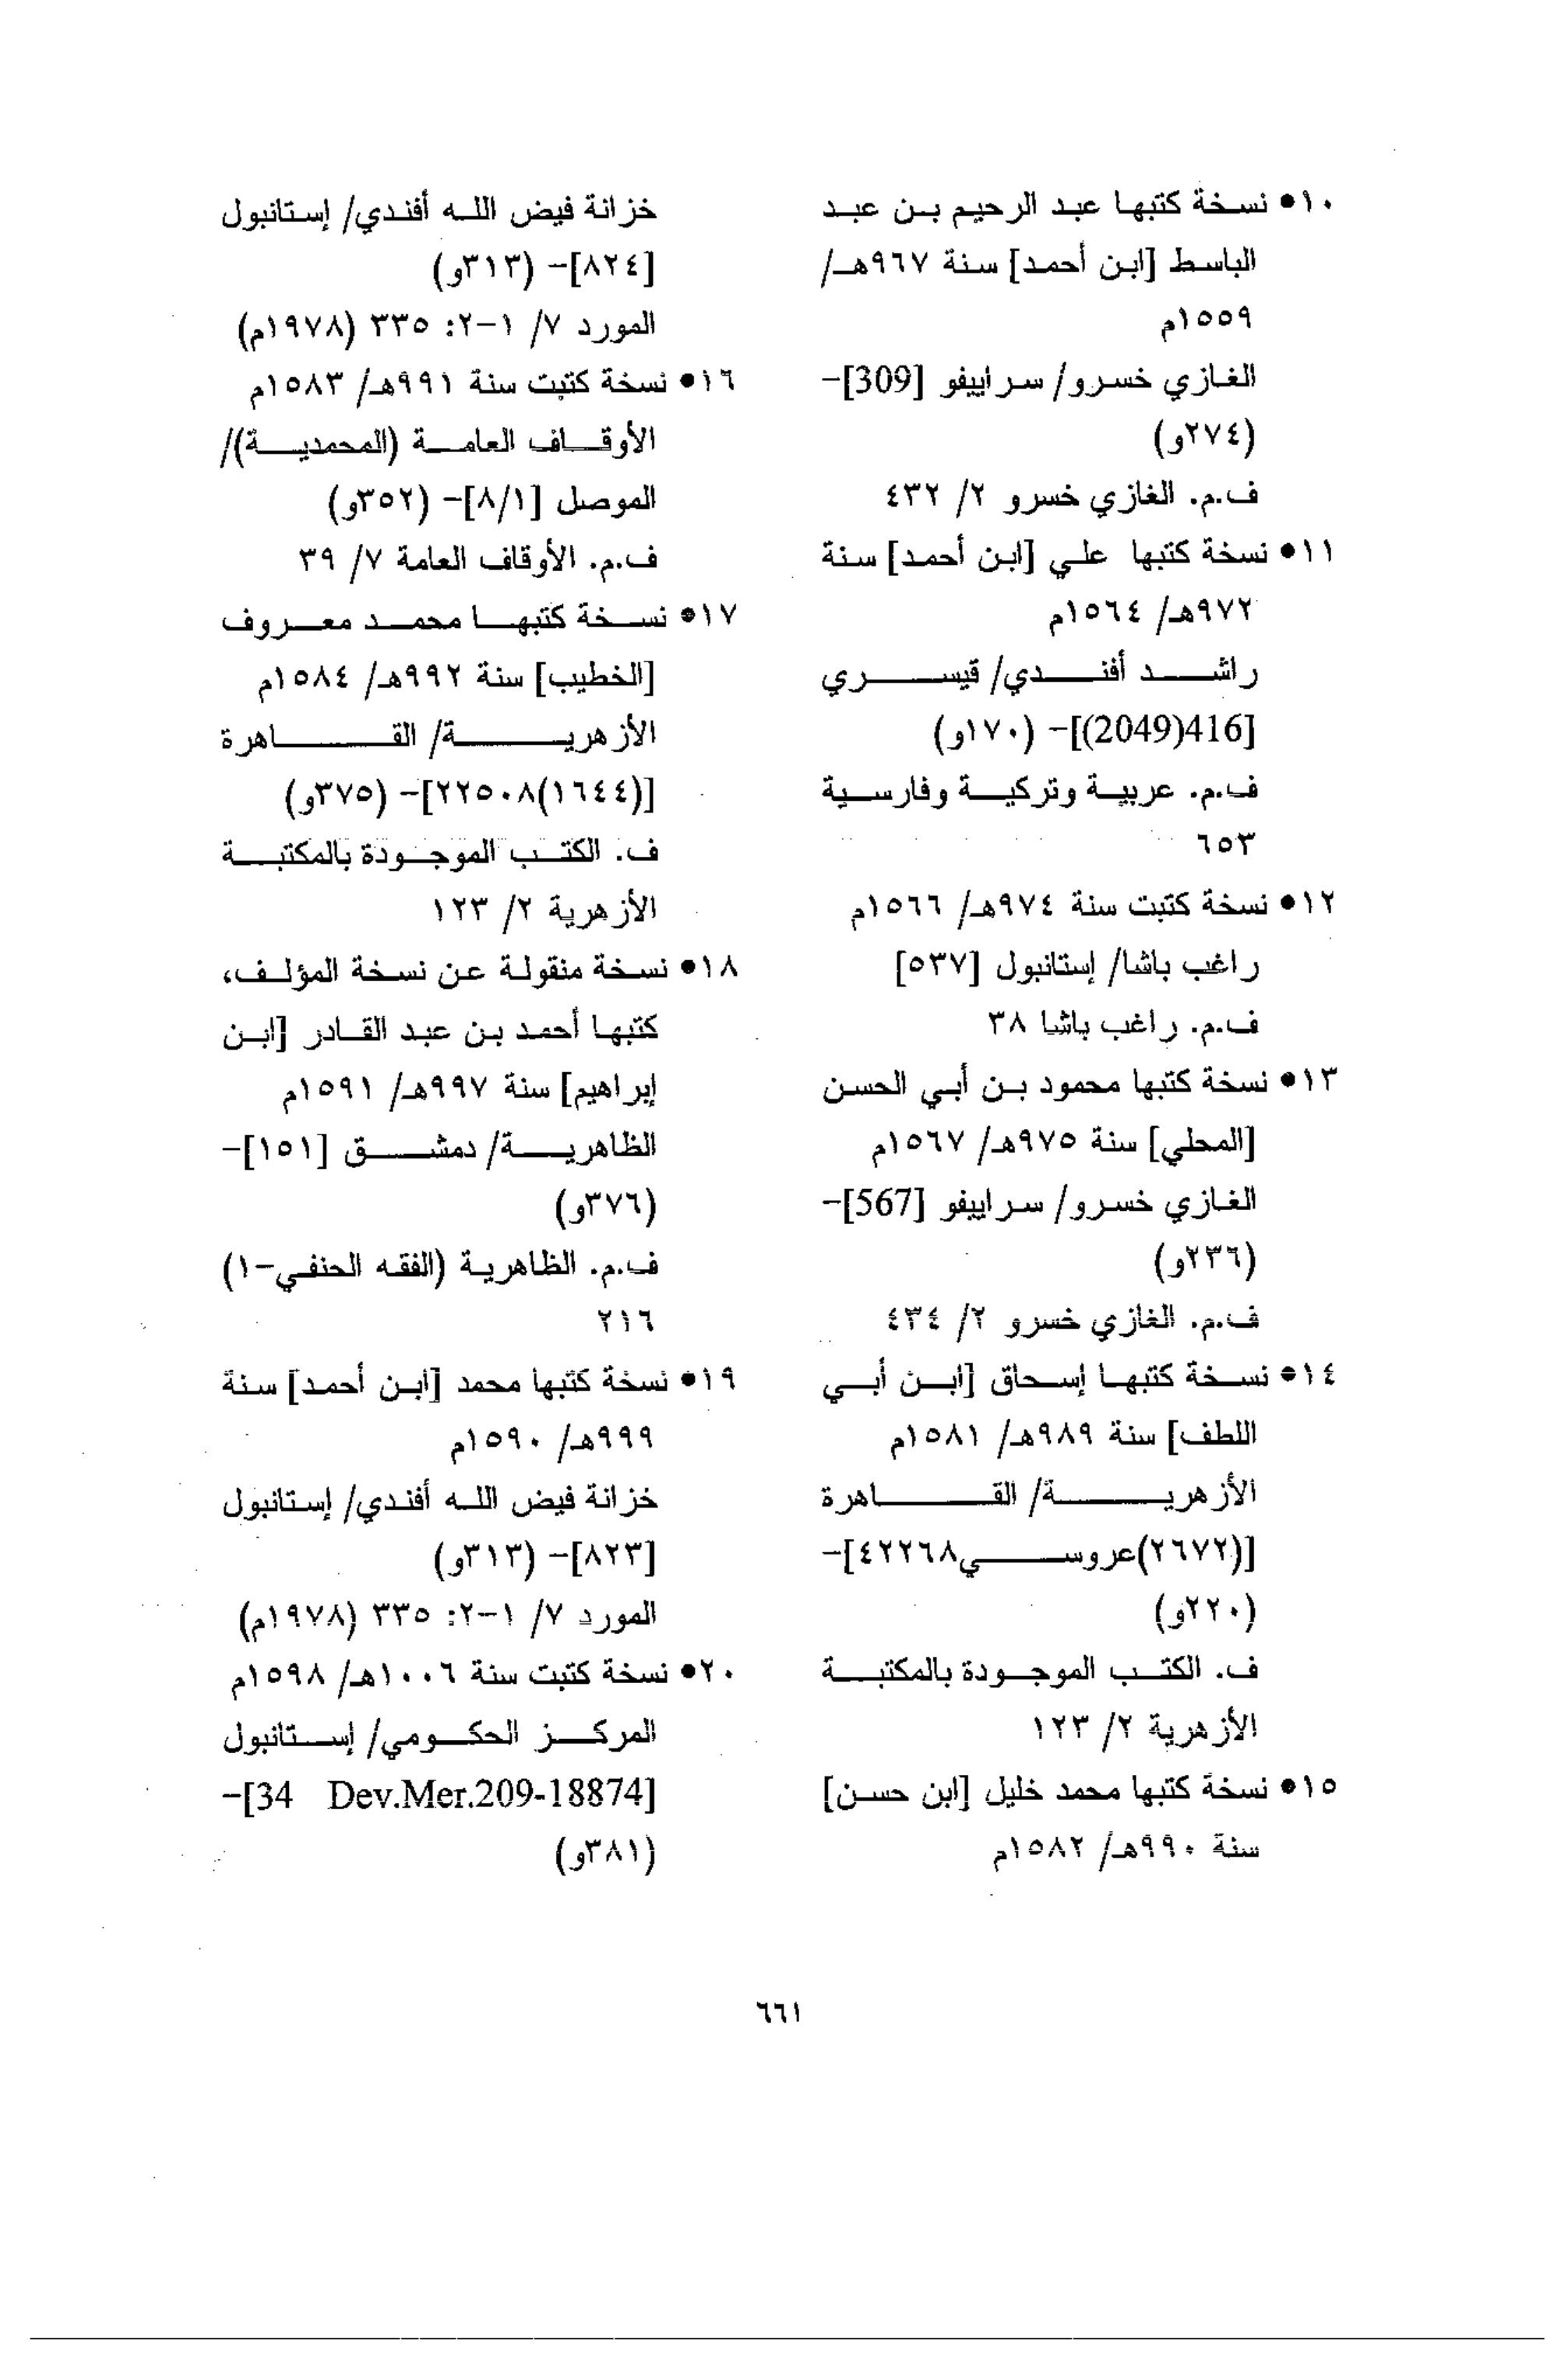 ١٠● نسخة كتبها عبد الرحيم بن عبد
الباسط [ابن أحمد] سنة ٩٦٧هـ/
١٥٥٩م
الغازي خسرو/ سراييفو [309]-
(٢٧٤و)
ف.م. الغازي خسرو ٢/ ٤٣٢
١١● نسخة كتبها علي [ابن أحمد] سنة
٩٧٢هـ/ ١٥٦٤م
راشد أفندي/ قيسري
[416(2049)]- (١٧٠و)
ف.م. عربية وتركية وفارسية
٦٥٣
١٢● نسخة كتبت سنة ٩٧٤هـ/ ١٥٦٦م
راغب باشا/ إستانبول [٥٣٧]
ف.م. راغب باشا ٣٨
١٣● نسخة كتبها محمود بن أبي الحسن
[المحلي] سنة ٩٧٥هـ/ ١٥٦٧م
الغازي خسرو/ سراييفو [567]-
(٢٣٦و)
ف.م. الغازي خسرو ٢/ ٤٣٤
١٤● نسخة كتبها إسحاق [ابن أبي
اللطف] سنة ٩٨٩هـ/ ١٥٨١م
الأزهرية/ القاهرة
[(٢٦٧٢)عروسي٤٢٢٦٨]-
(٢٢٠و)
ف. الكتب الموجودة بالمكتبة
الأزهرية ٢/ ١٢٣
١٥● نسخة كتبها محمد خليل [ابن حسن]
سنة ٩٩٠هـ/ ١٥٨٢م
خزانة فيض الله أفندي/ إستانبول
[٨٢٤]- (٣١٣و)
المورد ٧/ ١-٢: ٣٣٥ (١٩٧٨م)
١٦● نسخة كتبت سنة ٩٩١هـ/ ١٥٨٣م
الأوقاف العامة (المحمدية)/
الموصل [٨/١]- (٣٥٢و)
ف.م. الأوقاف العامة ٧/ ٣٩
١٧● نسخة كتبها محمد معروف
[الخطيب] سنة ٩٩٢هـ/ ١٥٨٤م
الأزهرية/ القاهرة
[(١٦٤٤)٢٢٥٠٨]- (٣٧٥و)
ف. الكتب الموجودة بالمكتبة
الأزهرية ٢/ ١٢٣
١٨● نسخة منقولة عن نسخة المؤلف،
كتبها أحمد بن عبد القادر [ابن
إبراهيم] سنة ٩٩٧هـ/ ١٥٩١م
الظاهرية/ دمشق [١٥١]-
(٣٧٦و)
ف.م. الظاهرية (الفقه الحنفي-١)
٢١٦
١٩● نسخة كتبها محمد [ابن أحمد] سنة
٩٩٩هـ/ ١٥٩٠م
خزانة فيض الله أفندي/ إستانبول
[٨٢٣]- (٣١٣و)
المورد ٧/ ١-٢: ٣٣٥ (١٩٧٨م)
٢٠● نسخة كتبت سنة ١٠٠٦هـ/ ١٥٩٨م
المركز الحكومي/ إستانبول
[34 Dev.Mer.209-18874]-
(٣٨١و)
٦٦١